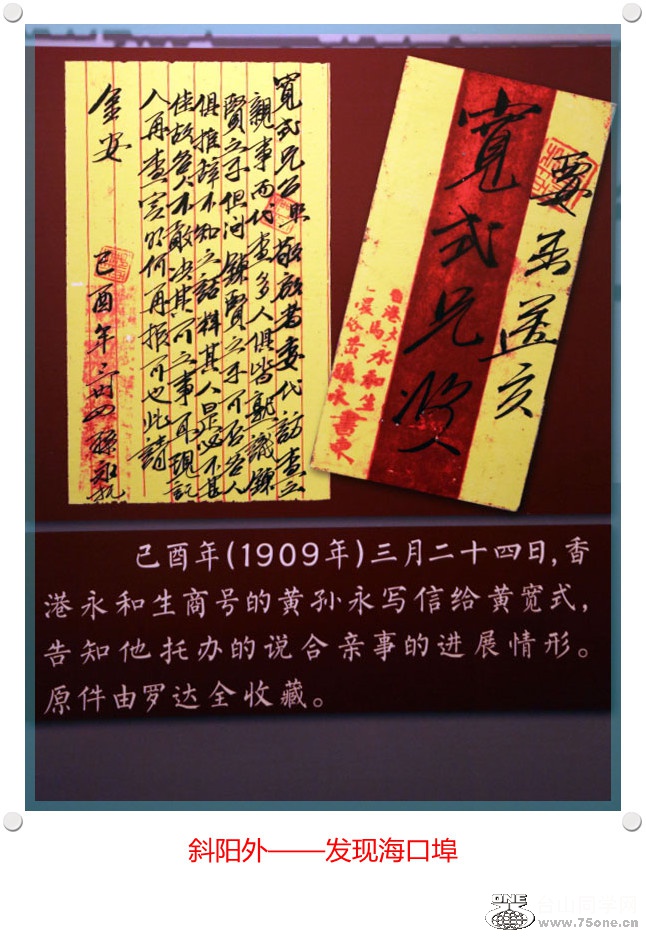 寬式兄公敬啟者委代訪查之
親事而代查多人俱皆識錦
賢之子但問錦賢之子可否答人
俱推辭不知之話料其人是必不甚
佳故不敢决其可之事耳現託
人再查實的何再报可也此請
金安
己酉年 孫永
要函送交
寬式兄收入
香港 永和生
孫永書柬
己酉年(1909年)三月二十四日,香
港永和生商号的黄孙永写信给黄宽式,
告知他托办的说合亲事的进展情形。
原件由罗达全收藏。
斜阳外——发现海口埠
ONE
www.75one.cn